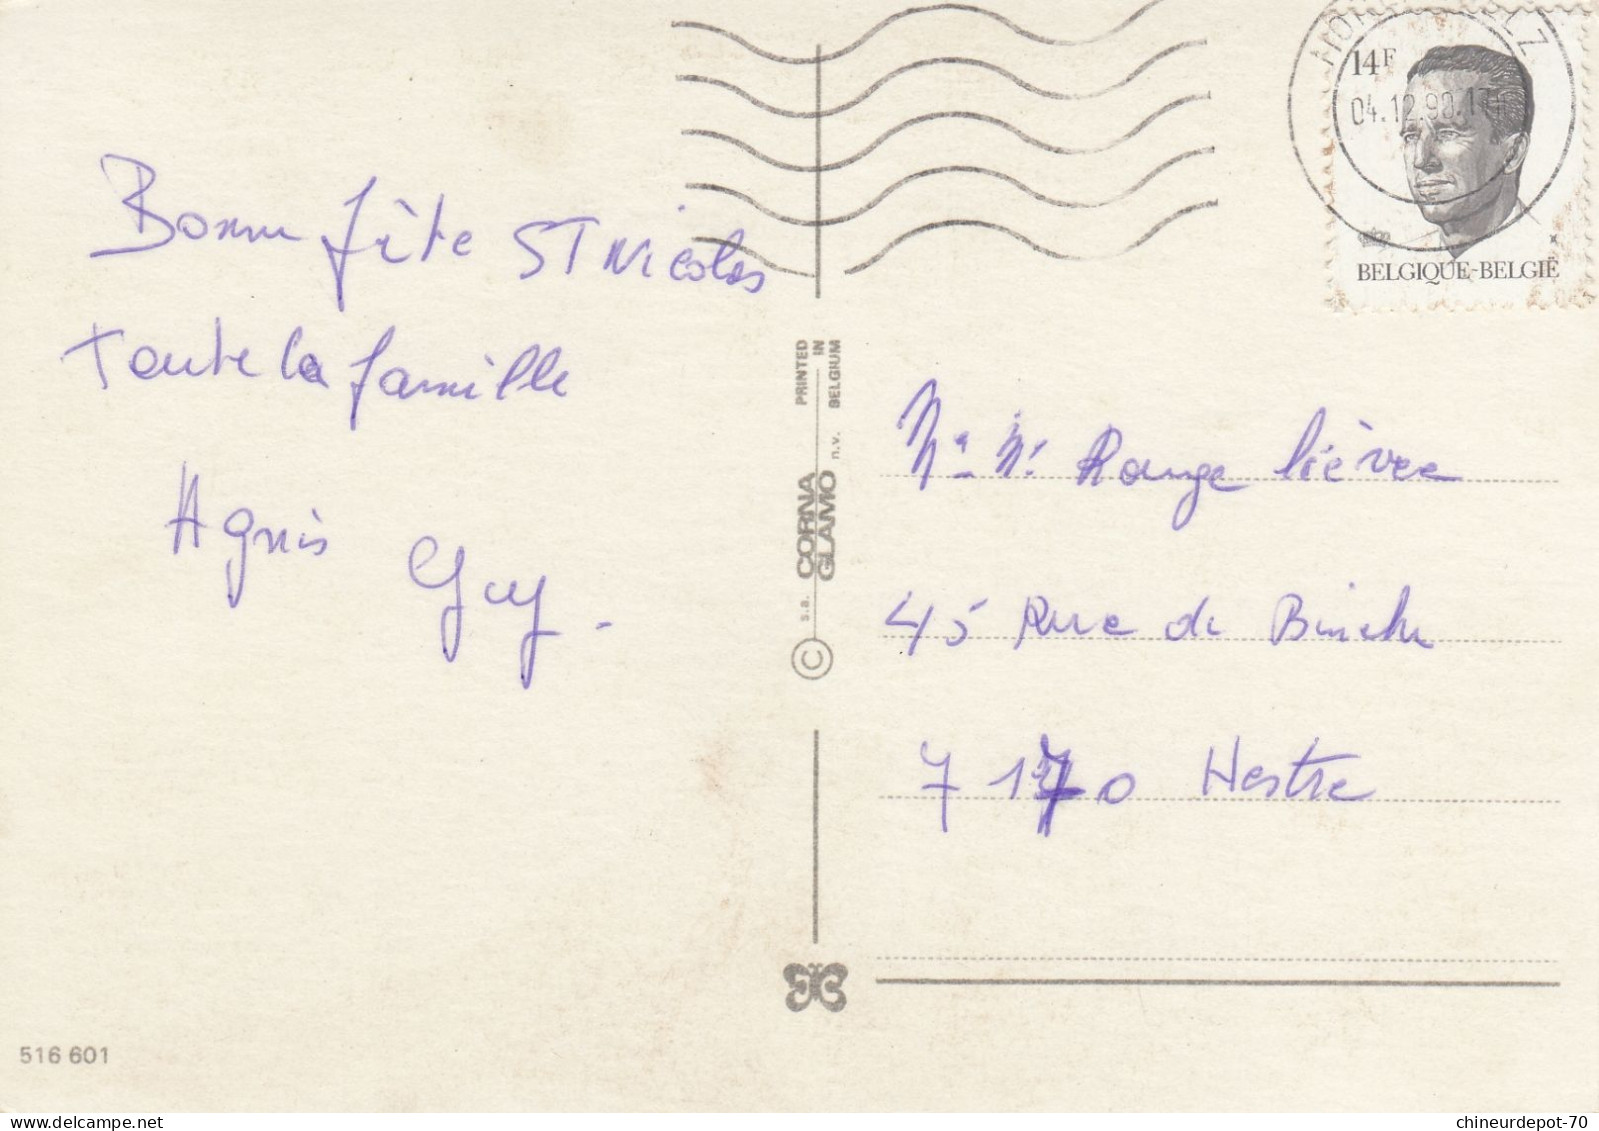 Bonne fête ST Nicolas
Toute la famille
Agnès Guy.
14F
04.12.90.17H
BELGIQUE-BELGIË
PRINTED
IN
BELGIUM
© s.a. CORNA GLAMO n.v.
lièvre
45 Rue de Binche
7170 Hestre
516 601
www.delcampe.net
chineurdepot-70